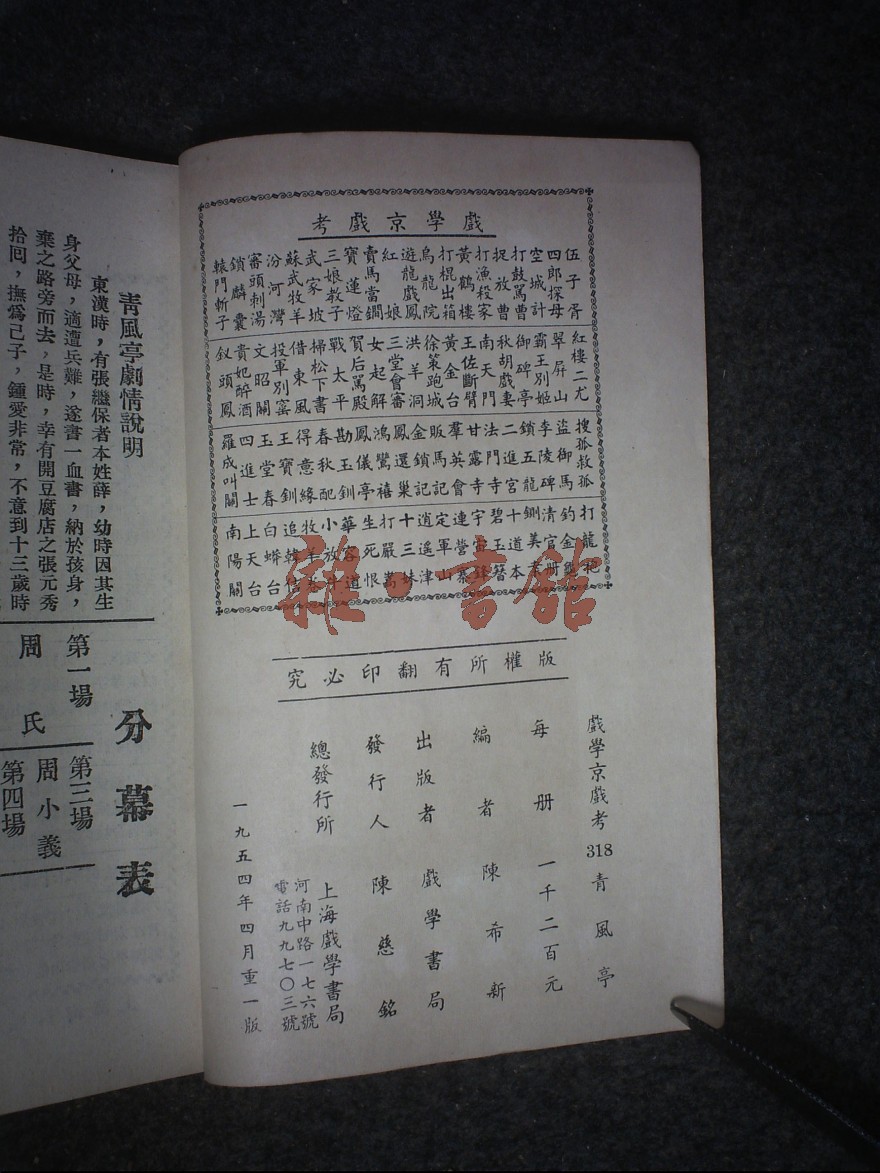 戲學京戲考
伍子胥
四郎探母
空城計
打鼓罵曹
捉放曹
打漁殺家
黃鶴樓
打棍出箱
烏龍院
遊龍戲鳳
紅娘
賣馬當鐧
寶蓮燈
三娘教子
武家坡
蘇武牧羊
汾河灣
審頭刺湯
鎖麟囊
轅門斬子
紅樓二尤
翠屏山
霸王別姬
御碑亭
秋胡戲妻
南天門
王佐斷臂
黃金台
徐策跑城
洪羊洞
三堂會審
女起解
賀后罵殿
戰太平
掃松下書
借東風
投軍別窰
文昭關
貴妃醉酒
釵頭鳳
搜孤救孤
盜御馬
李陵碑
鎖五龍
二進宮
法門寺
甘露寺
羣英會
販馬記
金鎖記
鳳還巢
鴻鸞禧
鳳儀亭
勘玉釧
春秋配
得意緣
王寶釧
玉堂春
四進士
羅成叫關
打龍袍
釣金龜
清官冊
鍘美案
十道本
碧玉簪
宇宙鋒
連營寨
定軍山
逍遙津
十三妹
打嚴嵩
生死恨
華容道
小放牛
牧羊卷
追韓信
白蟒台
上天台
南陽關
雜·書館
版權所有翻印必究
戲學京戲考318青風亭
每冊 一千二百元
編者 陳希新
出版者 戲學書局
發行人 陳慈銘
總發行所 上海戲學書局
河南中路一七六號
電話九九七〇三號
一九五四年四月重一版
青風亭劇情說明
東漢時，有張繼保者本姓薛，幼時因其生
身父母，適遭兵難，遂書一血書，納於孩身，
棄之路旁而去，是時，幸有開豆腐店之張元秀
拾囘，撫爲己子，鍾愛非常，不意到十三歲時
分幕表
第一場
周氏
第三場
周小義
第四場